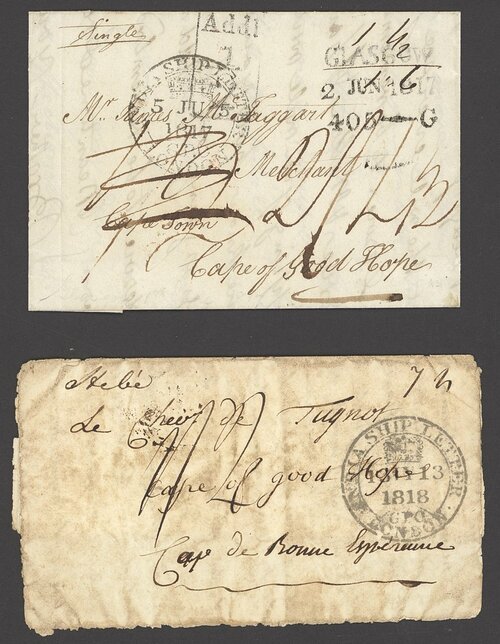 Single
Addl
1
1 ½
GLASGOW
2 JUN 1817
405 G
INDIA SHIP LETTER
5 JU 5
1817
GPO
LONDON
Mr James Taggart
Merchant
Cape Town
Cape of Good Hope
Hebé
Le de Tugnot
Cape of good Hope
Cap de Bonne Esperance
INDIA SHIP LETTER
13
1818
GPO
LONDON